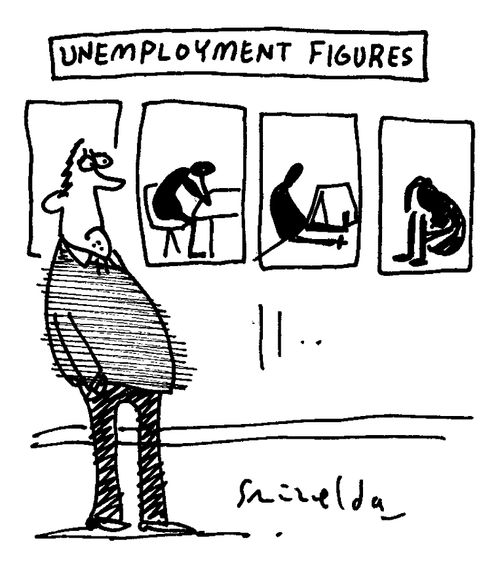 UNEMPLOYMENT FIGURES
Grizelda